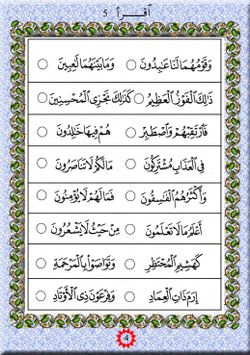 أقرأ 5
وَقَوْمُهُمَا لَنَا عَٰبِدُونَ ○ وَمَا بَيْنَهُمَا لَٰعِبِينَ ○
ذَٰلِكَ الْفَوْزُ الْعَظِيمُ ○ كَذَٰلِكَ نَجْزِي الْمُحْسِنِينَ ○
فَارْتَقِبْهُمْ وَاصْطَبِرْ ○ هُمْ فِيهَا خَٰلِدُونَ ○
فِي الْعَذَابِ مُشْتَرِكُونَ ○ مَا لَكُمْ لَا تَنَاصَرُونَ ○
وَأَكْثَرُهُمُ الْفَٰسِقُونَ ○ فَمَا لَهُمْ لَا يُؤْمِنُونَ ○
أَعْلَمُ مَا لَا تَعْلَمُونَ ○ مِنْ حَيْثُ لَا يَشْعُرُونَ ○
كَهَشِيمِ الْمُحْتَظِرِ ○ وَتَوَاصَوْا بِالْمَرْحَمَةِ ○
إِرَمَ ذَاتِ الْعِمَادِ ○ وَفِرْعَوْنَ ذِي الْأَوْتَادِ ○
4